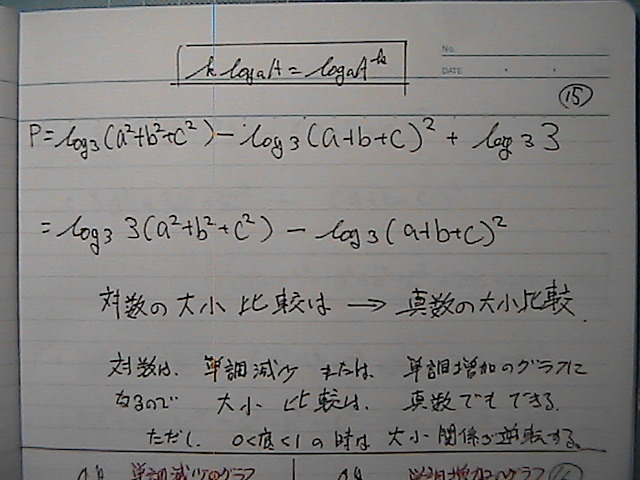 k log_a A = log_a A^k
No.
DATE
⑮
P = log_3(a²+b²+c²) − log_3(a+b+c)² + log_3 3
= log_3 3(a²+b²+c²) − log_3(a+b+c)²
対数の大小比較は → 真数の大小比較
対数は、単調減少 または、単調増加のグラフに
なるので 大小比較は、真数でもできる。
ただし、0<底<1の時は大小関係が逆転する。
単調減少のグラフ 単調増加のグラフ